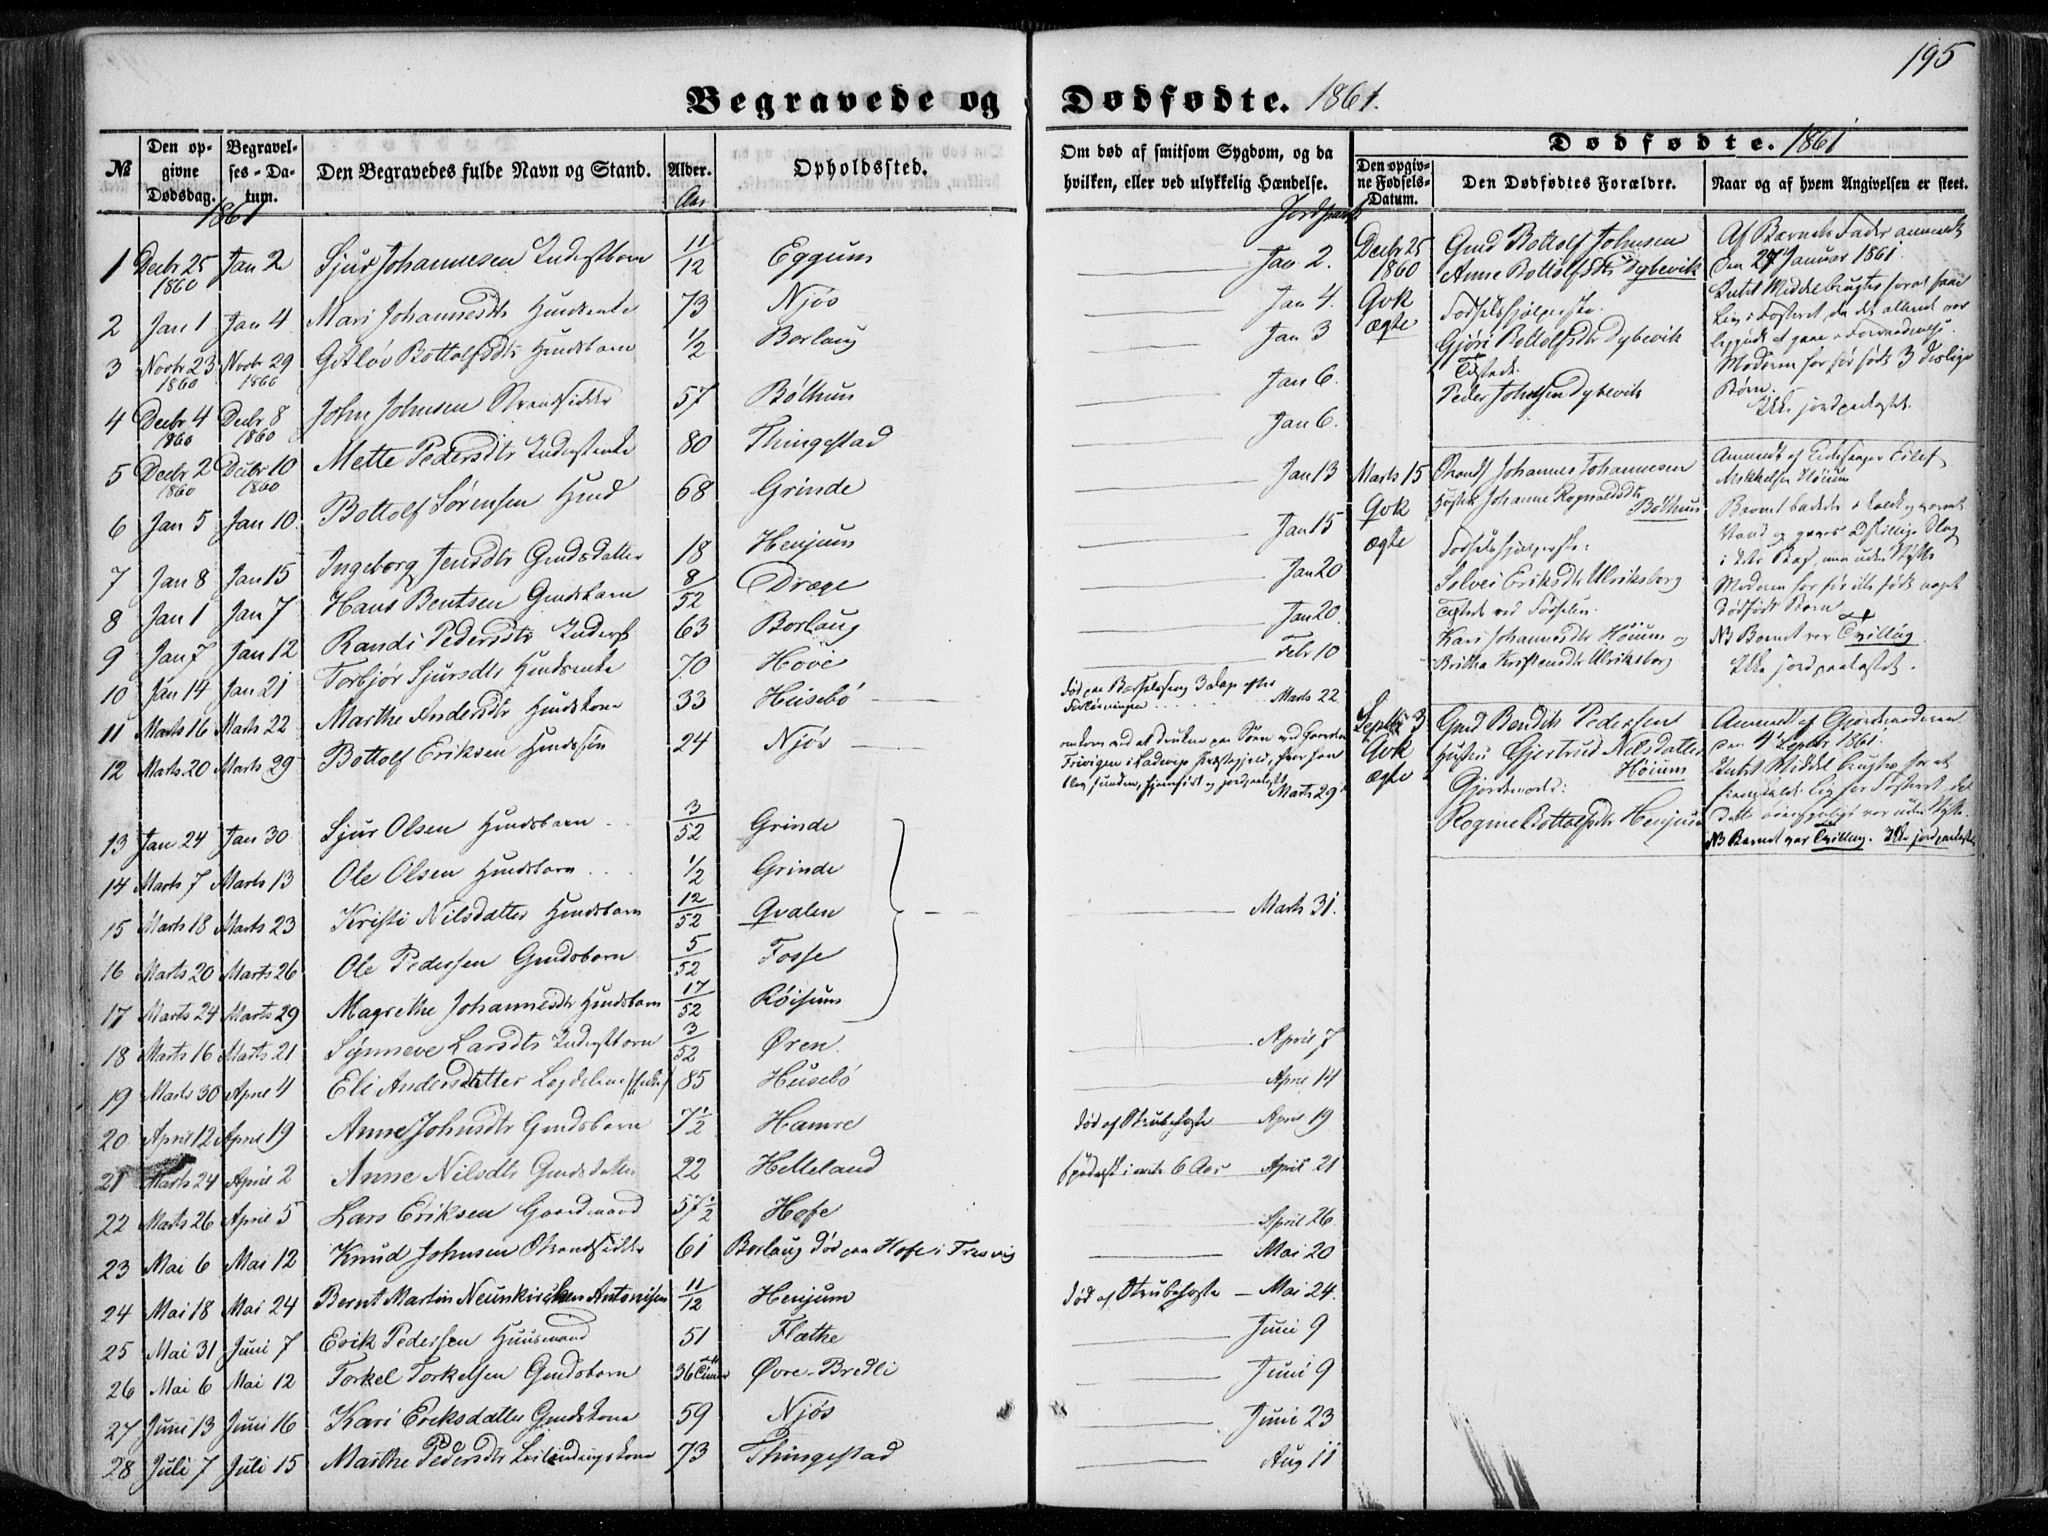 195
Begravede og Dødfødte. 1861.
№
Den opgivne Dødsdag.
Begravelses-Datum.
Den Begravedes fulde Navn og Stand.
Alder.
Opholdssted.
Om død af smitsom Sygdom, og da hvilken, eller ved ulykkelig Hændelse.
1861
Aar
Jordpaak
1 Decbr 25 1860 Jan 2 Sjur Johannesen Inderstbarn 11/12 Eggum Jan. 2.
2 Jan 1 Jan 4 Mari Johannesdtr Huusenke 73 Njøs Jan 4.
3 Novbr 23 1860 Novbr 29 1860 Gitlöv Bottolfsdtr Huusbarn 1/2 Borlaug Jan 3
4 Decbr 4 1860 Decbr 8 1860 John Johnsen Strandsidder 57 Bøthun Jan 6.
5 Decbr 2 1860 Decbr 10 1860 Mette Pedersdtr Inderstenke 80 Thingestad Jan 6.
6 Jan 5 Jan 10 Bottolf Sørensen Huusd 68 Grinde Jan 13
7 Jan 8 Jan 15 Ingeborg Jensdtr Gmdsdatter 18 Henjum Jan 15
8 Jan 1 Jan 7 Hans Bentsen Gmdsbarn 8/52 Dræge Jan 20
9 Jan 7 Jan 12 Randi Pedersdtr Inderst 63 Borlaug Jan 20.
10 Jan 14 Jan 21 Torbjør Sjursdtr Huusenke 70 Hove Febr 10
11 Marts 16 Marts 22 Marthe Andersdtr Huuskone 33 Husebö død paa Barselseng 3 Dage efter Forløsningen Marts 22
12 Marts 20 Marts 29 Bottolf Eriksen Huusdsøn 24 Njøs omkom ved at drukne paa Søen ved Gaarden Frivigen i Ladevigs Præstegjeld, hvor han blev funden, hjemført og jordpaakastet Marts 29
13 Jan 24 Jan 30 Sjur Olsen Hmdsbarn 3/52 Grinde
14 Marts 7 Marts 13 Ole Olsen Hmdsbarn 1/2 Grinde
15 Marts 18 Marts 23 Kristi Nilsdatter Hmdsbarn 12/52 Qvalen Marts 31.
16 Marts 20 Marts 26 Ole Pedersen Gmdsbarn 5/52 Fosse
17 Marts 24 Marts 29 Magrethe Johannesdtr Hmdsbarn 17/52 Röisum
18 Marts 16 Marts 21 Synneve Larsdtr Inderstbarn 3/52 Øren April 7
19 Marts 30 April 4 Eli Andersdatter Legdelem (enke) 85 Husebö April 14
20 April 12 April 19 Anne Johnsdtr Gmdsbarn 7 1/2 Hamre død af Strubehoste April 19
21 Marts 24 April 2 Anne Nilsdtr Gmdsdatter 22 Helleland Spedalsk i circa 6 Aar April 21
22 Marts 26 April 5 Lars Eriksen Gaardmand 57 1/2 Hofe April 26
23 Mai 6 Mai 12 Knud Johnsen Strandsidder 61 Borlaug død paa Hofe i Fresvig Mai 20
24 Mai 18 Mai 24 Bernt Martin Neunkirchen Antonisen 11/12 Henjum død af Strubehoste Mai 24.
25 Mai 31 Juni 7 Erik Pedersen Huusmand 51 Flæthe Juni 9
26 Mai 6 Mai 12 Torkel Torkelsen Gmdsbarn 36 Timer Øvre-Bredli Juni 9
27 Juni 13 Juni 16 Kari Eriksdatter Gmdskone 59 Njøs Juni 23
28 Juli 7 Juli 15 Marthe Pedersdtr Leilendingskone 73 Thingestad Aug 11
Dødfødte. 1861
Den opgivne Fødsels-Datum.
Den Dødfødtes Forældre.
Naar og af hvem Angivelsen er skeet.
Decbr 25 1860
Qvk
ægte
Gmd Bottolf Johnsen
Anne Bottolfsdtr Dybevik
Fødselshjælperske:
Gjøri Bottolfsdtr Dybevik
Tilstede:
Peder Johnsen Dybevik
Af Barnets Fader anmeldt
den 27 Januar 1861.
Intet Middel brugtes for at faae
Liv i Fosteret, da det allerede var
begyndt at gaae i Forraadnelse.
Moderen har før født 3 deslige
Børn.
Ikke jordpaakastet.
Marts 15
Qvk
ægte
Strands Johannes Johannesen
Hustru Johanne Rognaldsdtr
Bøthun
Fødselshjælperske:
Solvei Eriksdtr Ulriksborg
Tilstede ved Fødselen:
Kari Johannesdtr Höium og
Britha Kristensdtr Ulriksborg
Anmeldt af Eidsøger Eilef
Mikkelsen Höium
Barnet badedes i koldt og varmt
Vand og gaves adskillige Slag
i dets Bag, men uden Nytte
Moderen har før ikke født noget
dødfødt Barn
NB Barnet var Tvilling.
Ikke jordpaakastet.
Septbr 3
Qvk
ægte
Gmd Bendik Pedersen
Hustru Gjertrud Nilsdatter
Höium
Gjordemoder:
Rogne Bottolfsdtr Henjum
Anmeldt af Gjordemoderen
den 4 Septbr 1861.
Intet Middel brugtes for at
fremkalde Liv hos Fosteret, da
dette øiensynligt var uden Nytte.
NB Barnet var Tvilling. Ikke jordpaakastet